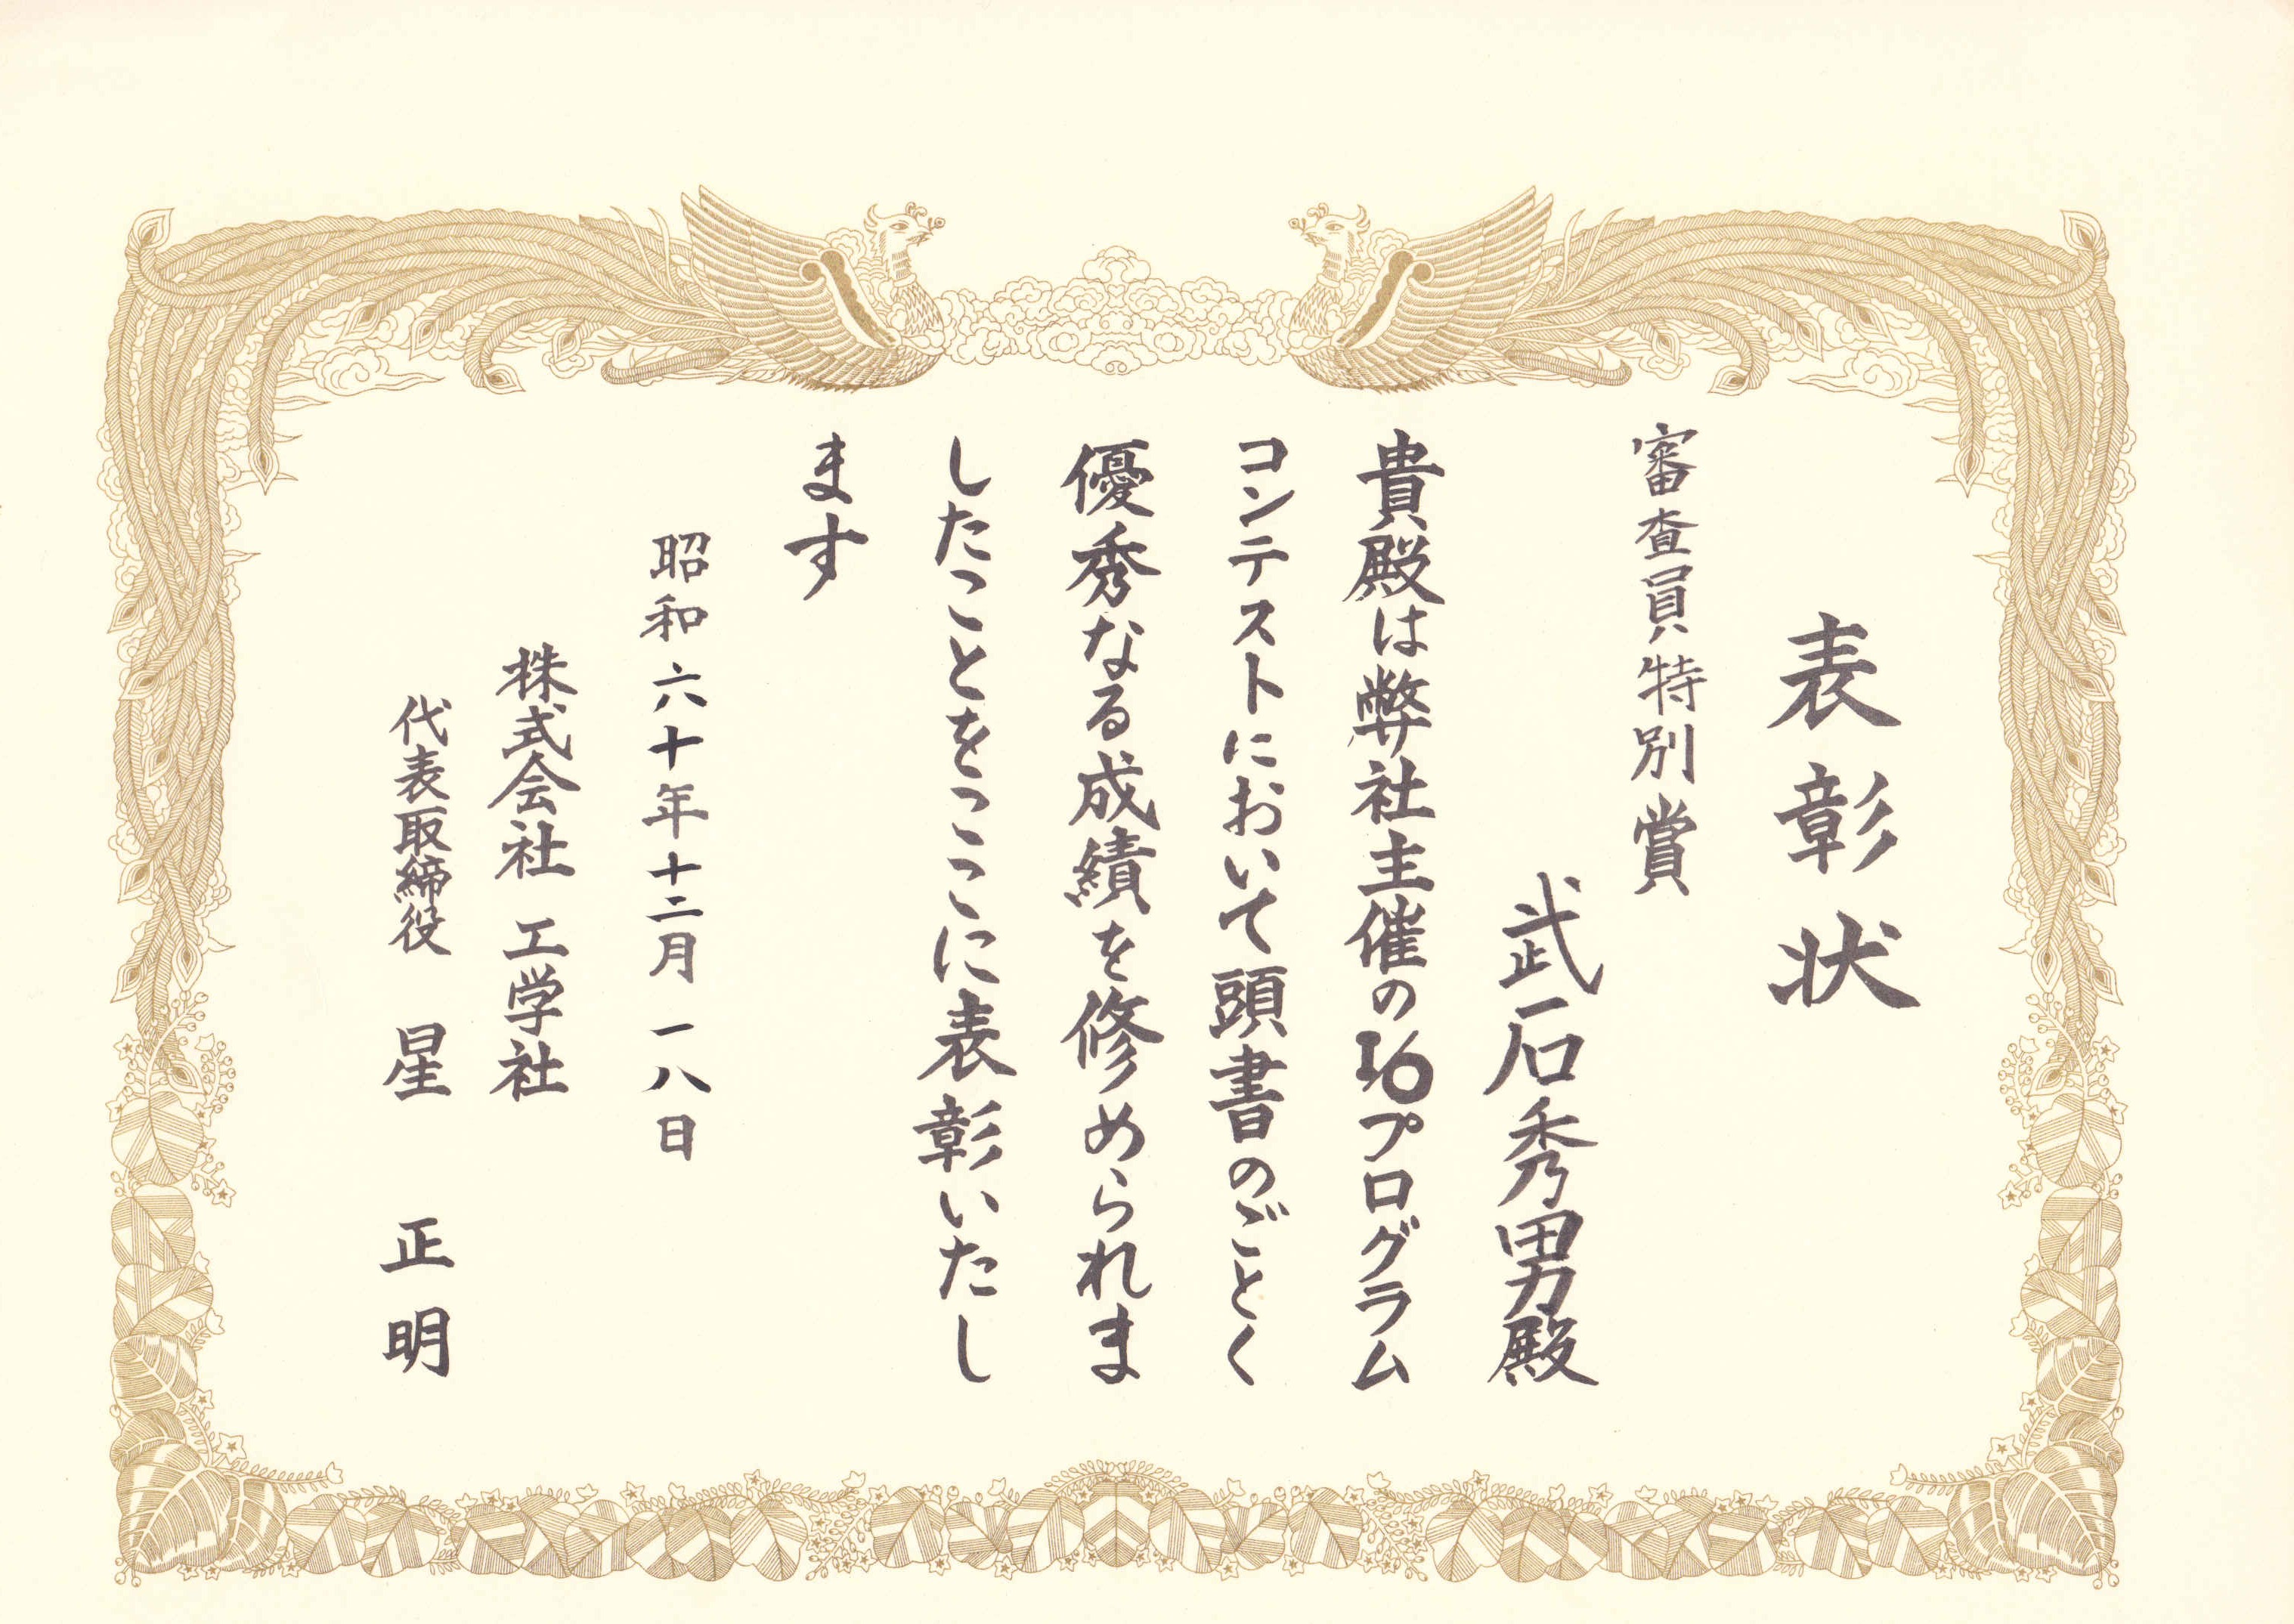 表彰状
審査員特別賞
武石秀男殿
貴殿は弊社主催のI/Oプログラム
コンテストにおいて頭書のごとく
優秀なる成績を修められま
したことをここに表彰いたし
ます
昭和六十年十二月一八日
株式会社 工学社
代表取締役 星 正明